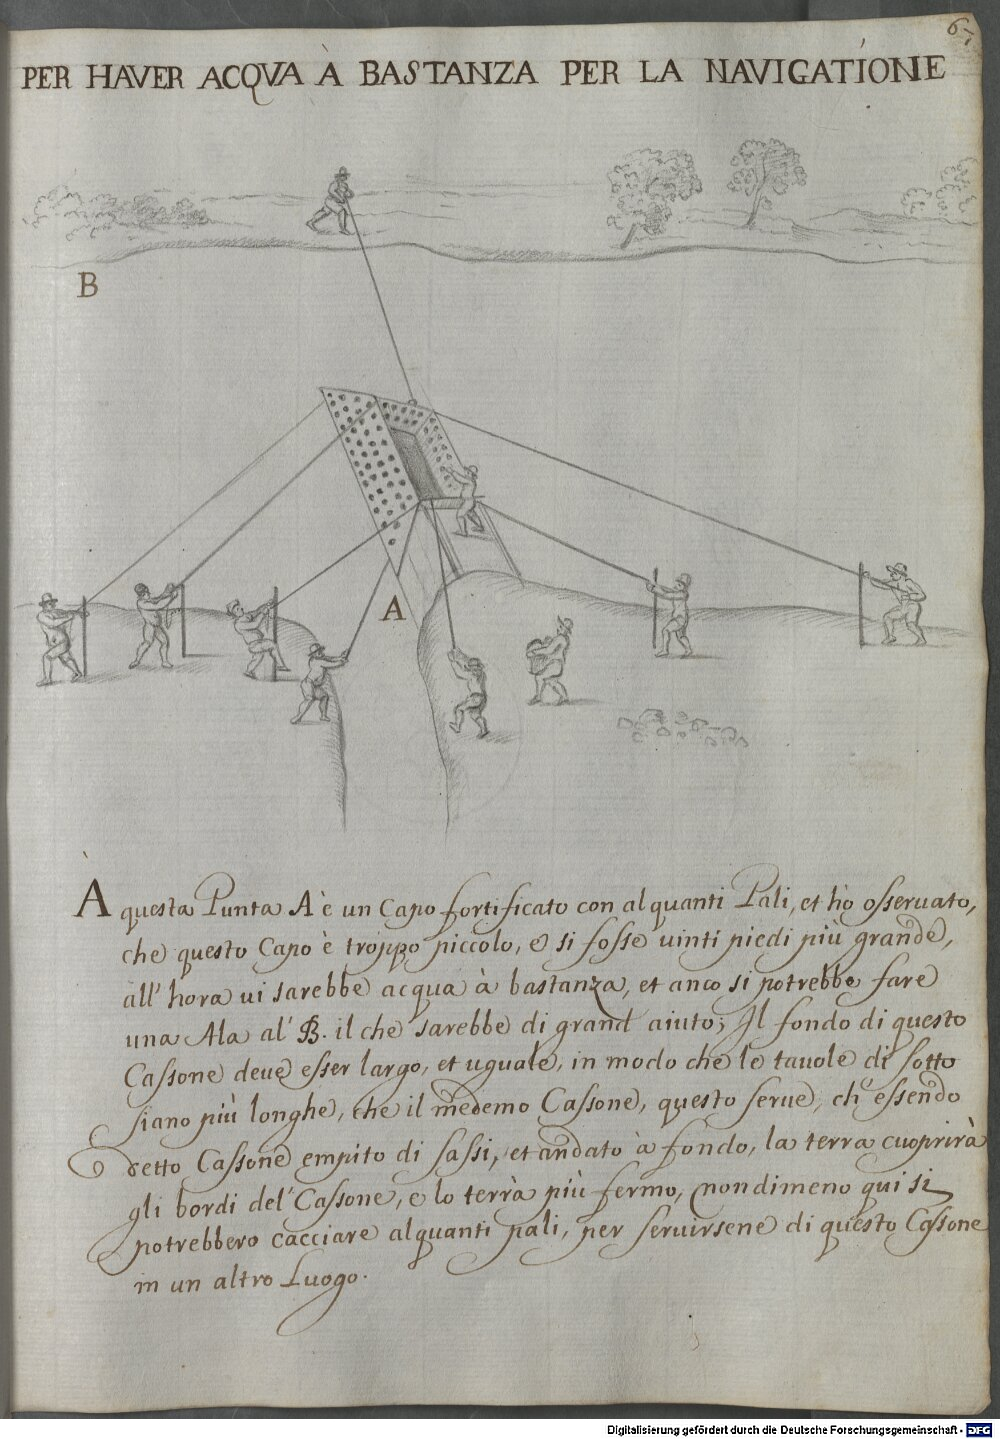 67
PER HAVER ACQVA À BASTANZA PER LA NAVIGATIONE
B
A
À questa Punta A è un Capo fortificato con alquanti Pali, et hò osseruato,
che questo Capo è troppo piccolo, e si fosse uinti piedi più grande,
all' hora ui sarebbe acqua à bastanza, et anco si potrebbe fare
una Ala al' B. il che sarebbe di grand aiuto; Il fondo di questo
Cassone deue esser largo, et uguale, in modo che le tauole di sotto
siano più longhe, che il medemo Cassone, questo serue, ch' essendo
detto Cassone empito di sassi, et andato à fondo, la terra cuoprirà
gli bordi del' Cassone, e lo terrà più fermo, nondimeno qui si
potrebbero cacciare alquanti pali, per seruirsene di questo Cassone
in un altro Luogo.
Digitalisierung gefördert durch die Deutsche Forschungsgemeinschaft - DFG